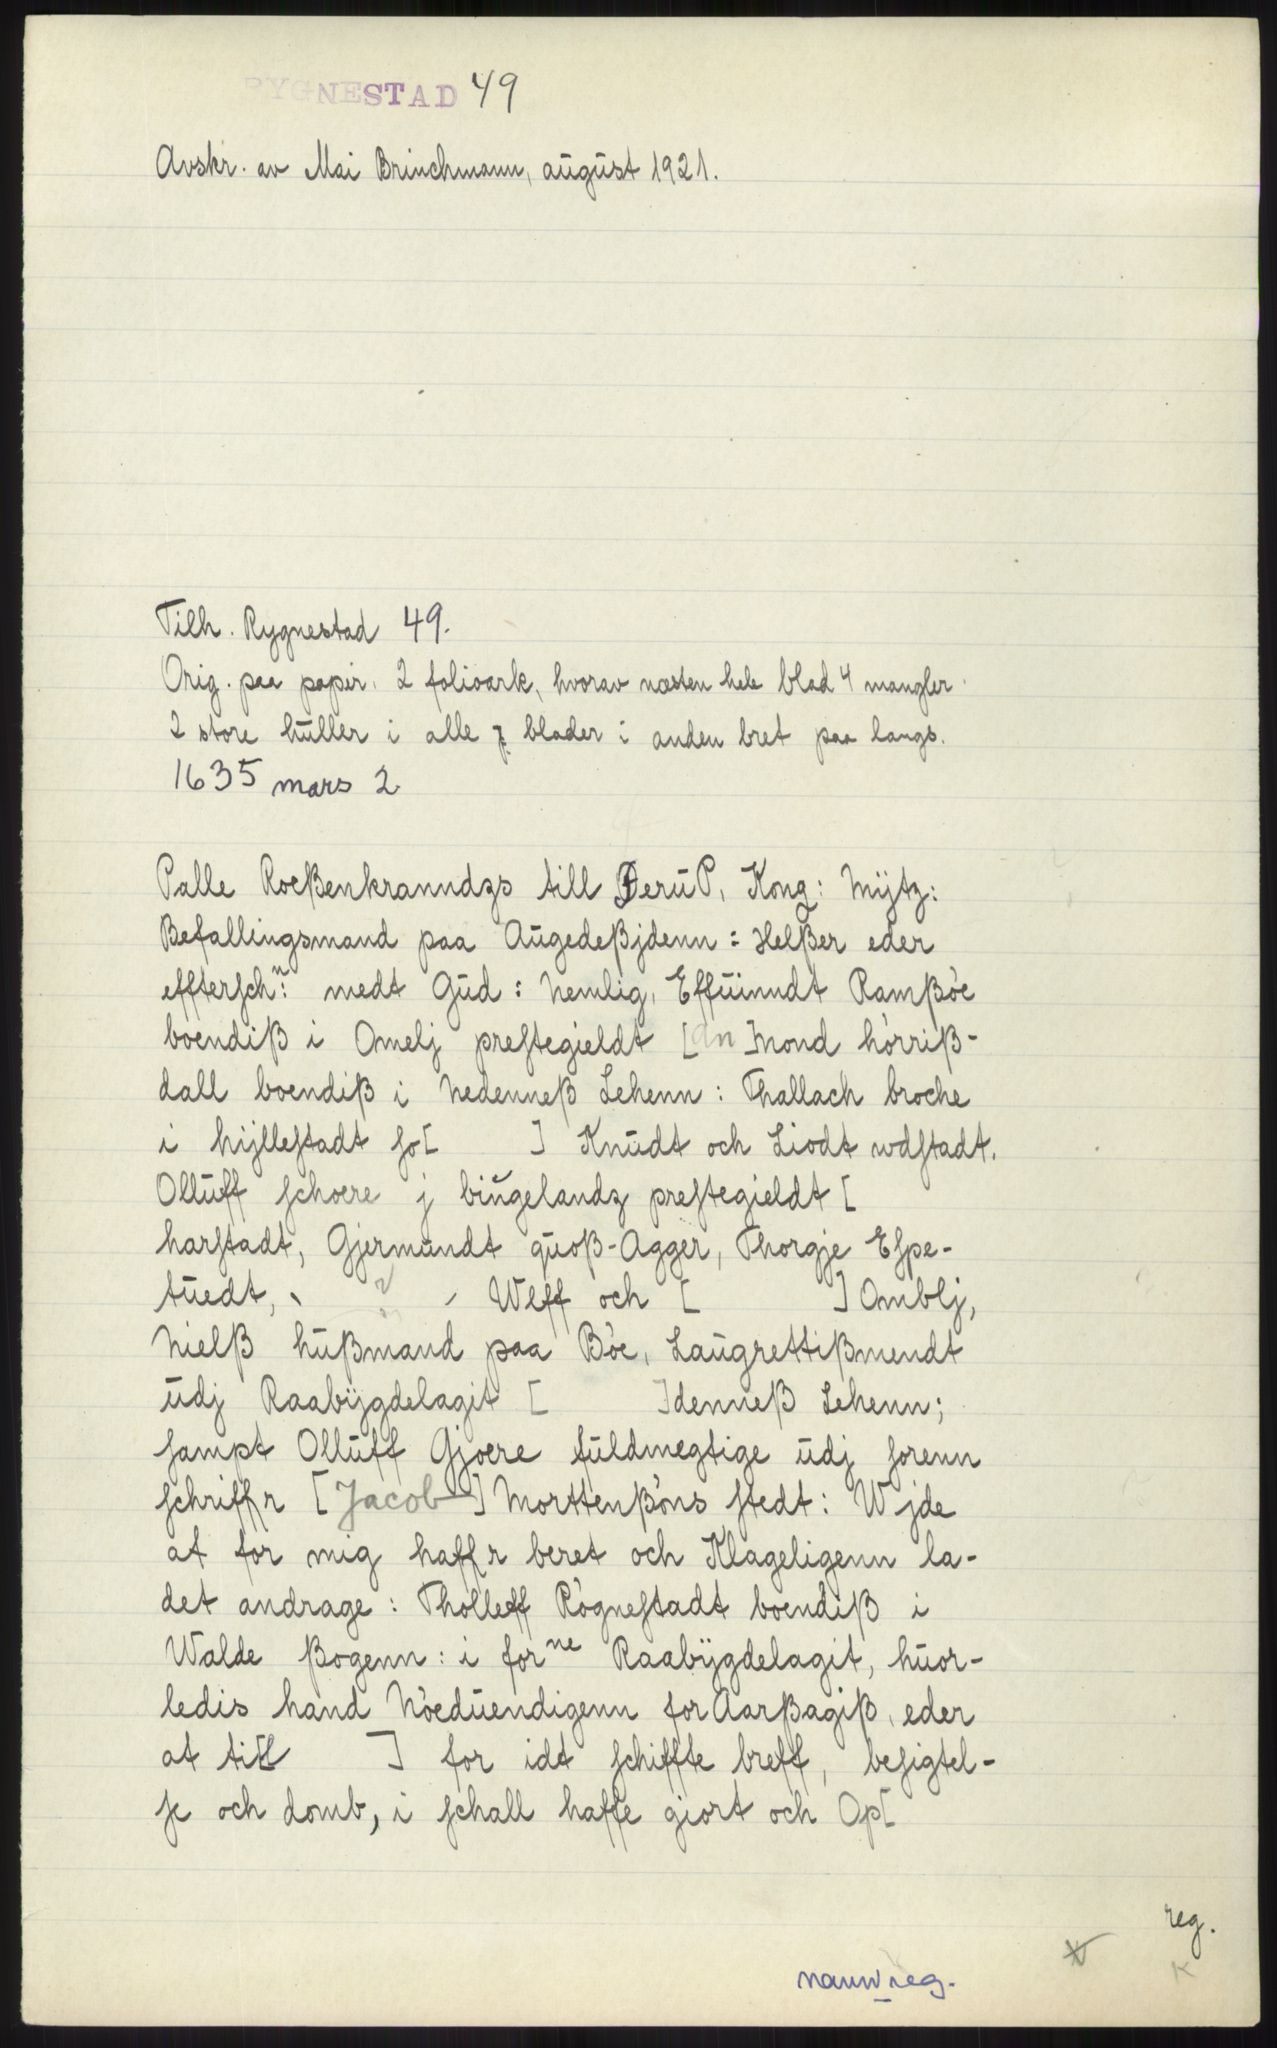 RYGNESTAD 49
Avskr. av Mai Brinchmann, august 1921.
Tilh. Rygnestad 49.
Orig. paa papir. 2 folioark, hvorav næsten hele blad 4 mangler.
2 store huller i alle blader i anden bret paa langs.
1635 mars 2.
Palle Roeßenkranndzs till ØeruP, Kong: Mÿtz:
Befallingsmand paa Augedeßjdenn: Helßer eder
effterschⁿ: medt Gud: Nemlig, Effuinndt Ramßöe
boendiß i Omelj prestegieldt [An]mond hörriß-
dall boendiß i Nedenneß Lehenn: Thallach broche
i hÿllestadt so[ ] Knudt och Liodt wdstadt.
Olluff schoere j bÿgelandz prestegieldt [
harstadt, Gjermundt quoß-Agger, Thorgje Espe-
tuedt, Wlff och [ ] Omblj,
Nielß hußmand paa Böe, Laugrettißmendt
udj Raabÿgdelagit [ ]denneß Lehenn;
sampt Olluff Gjoere fuldmegtige udj sorenn
schriffr [Jacob] Morttenßöns stedt: Wjde
at for mig haffr beret och Klageligenn la-
det andrage: Tholleff Rögnestadt boendiß i
Walde ßogenn: i forⁿᵉ Raabÿgdelagit, huor-
ledis hand Nöeduendigenn for Aarßagiß, eder
at til[ ] for idt schiffte breff, besigtel-
se och domb, i schall haffe giort och Op[
reg.
navnreg.